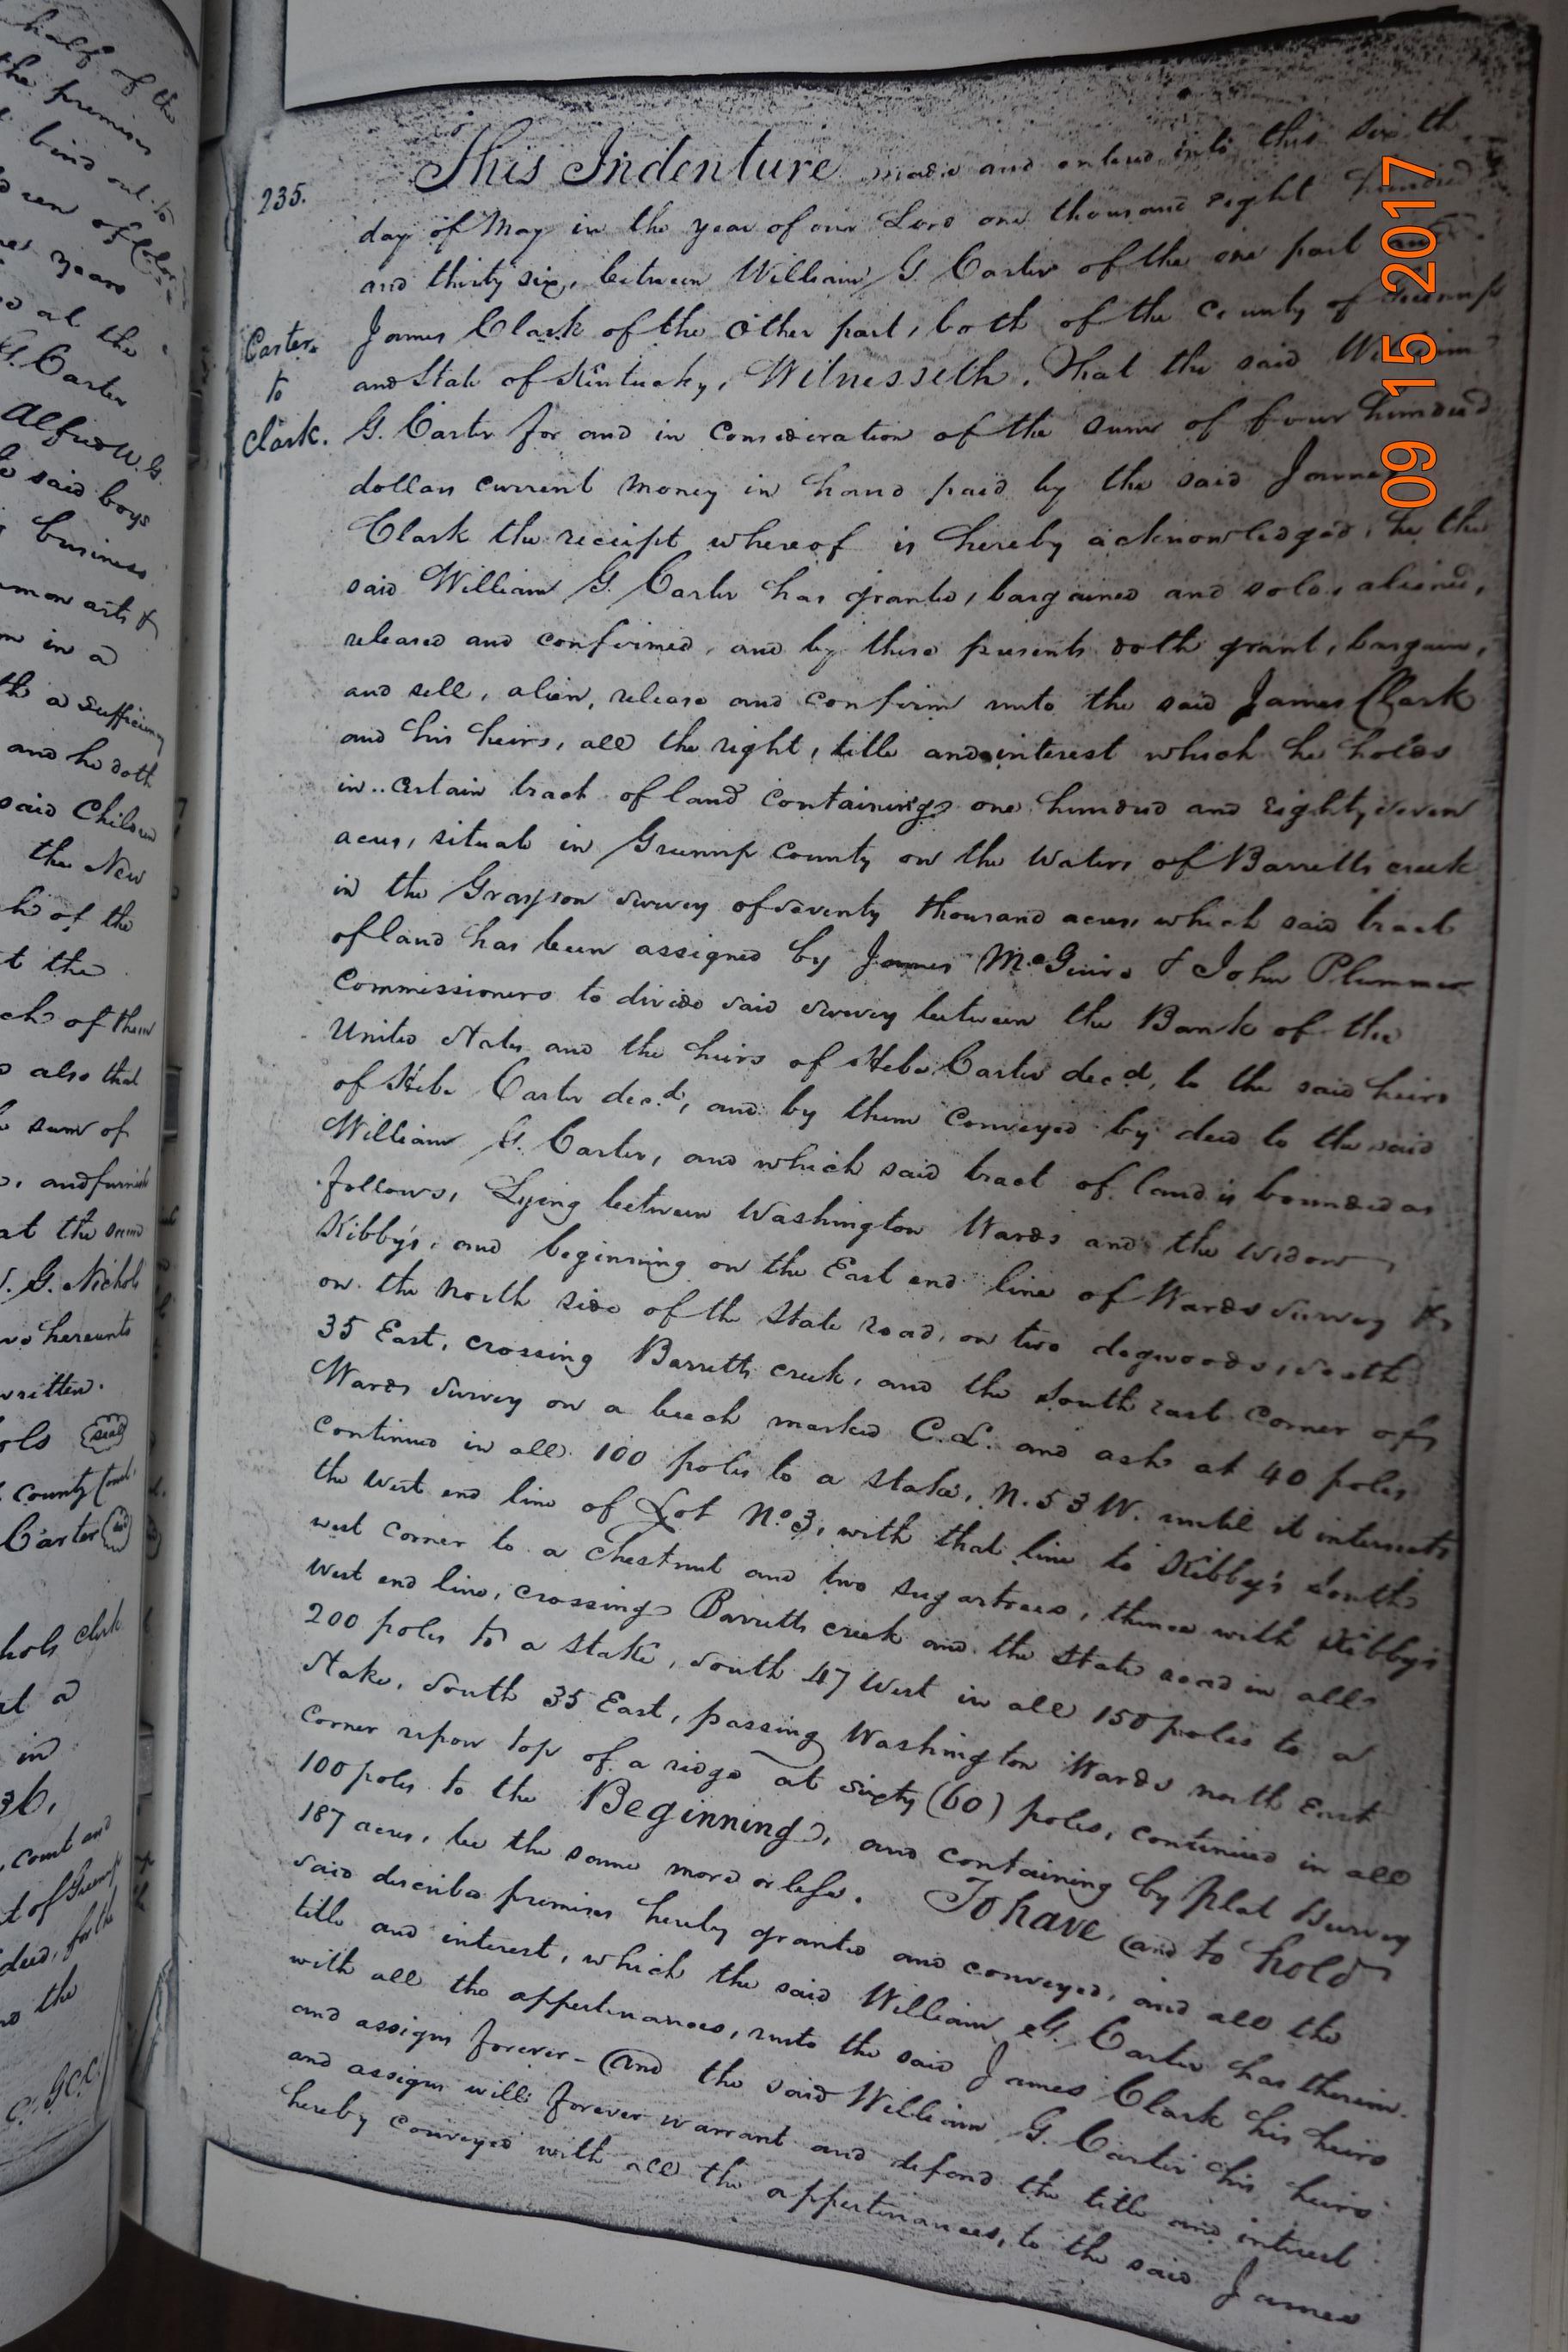 half of the
the premises
bind out to
years
at the
G. Carter
Alfred W. G.
said boys
business
in a
a sufficiency
and he doth
said Children
the New
of the
t the
of them
also that
sum of
and furnish
at the
G. Nichols
hereunto
written.
seal
County
Carter
clerk
in
36,
court and
deed, for the
the
235.
Carter
to
Clark.
This Indenture made and entered into this sixth
day of May in the year of our Lord one thousand eight hundred
and thirty six, between William G. Carter of the one part and
James Clark of the other part, both of the County of Greenup
and State of Kentucky, Witnesseth, That the said William
G. Carter for and in consideration of the sum of four hundred
dollars current money in hand paid by the said James
Clark the receipt whereof is hereby acknowledged, he the
said William G. Carter has granted, bargained and sold, aliened,
released and confirmed, and by these presents doth grant, bargain,
and sell, alien, release and confirm unto the said James Clark
and his heirs, all the right, title and interest which he holds
in .. certain tract of land containing one hundred and eighty seven
acres, situate in Greenup County on the waters of Barretts creek
in the Grayson survey of seventy thousand acres, which said tract
of land has been assigned by James McGuire & John Plummer
Commissioners to divide said survey between the Bank of the
United States and the heirs of Hebe Carter decd, to the said heirs
of Hebe Carter decd, and by them conveyed by deed to the said
William G. Carter, and which said tract of land is bounded as
follows, Lying between Washington Wards and the widow
Kibby's, and beginning on the East end line of Wards survey
on the north side of the State road, on two dogwoods, South
35 East, crossing Barretts creek, and the South east corner of
Wards survey on a beech marked C.L. and ash at 40 poles
continued in all 100 poles to a stake, N. 53 W. until it intersects
the West end line of Lot No 3, with that line to Kibby's South
west corner to a chestnut and two sugartrees, thence with Kibby's
West end line, crossing Barretts creek and the State road in all
200 poles to a stake, South 47 West in all 150 poles to a
stake, South 35 East, passing Washington Wards north East
corner upon top of a ridge at sixty (60) poles, continued in all
100 poles to the Beginning, and containing by plat Survey
187 acres, be the same more or less. To have and to hold
said described premises hereby granted and conveyed, and all the
title and interest, which the said William G. Carter has therein.
with all the appertinances, unto the said James Clark his heirs
and assigns forever - And the said William G. Carter his heirs
and assigns will forever warrant and defend the title and interest
hereby conveyed with all the appertinances, to the said James
09 15 2017